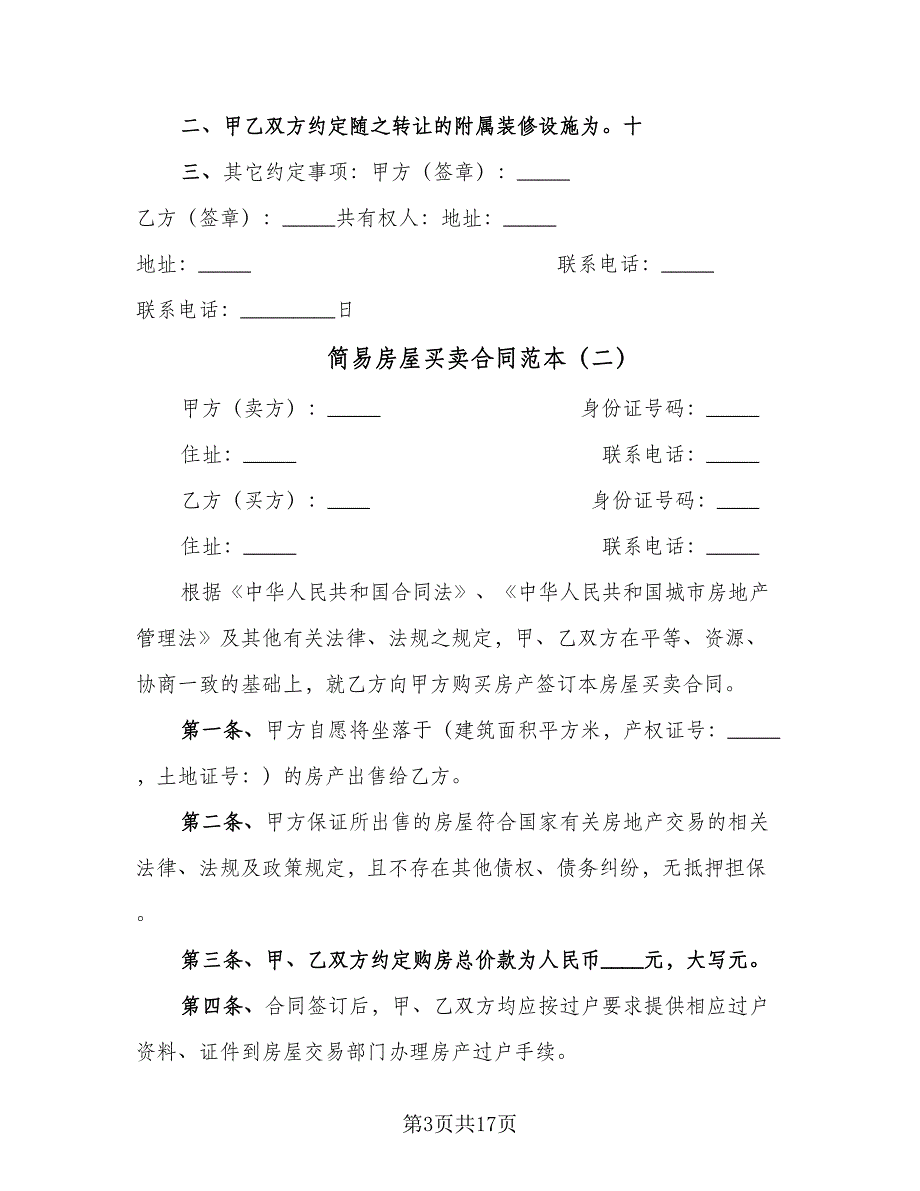 二、甲乙双方约定随之转让的附属装修设施为。十
三、其它约定事项：甲方（签章）：_____
乙方（签章）：_____共有权人：地址：_____
地址：_____ 联系电话：_____
联系电话：_________日
简易房屋买卖合同范本（二）
甲方（卖方）：_____ 身份证号码：_____
住址：_____ 联系电话：_____
乙方（买方）：____ 身份证号码：____
住址：_____ 联系电话：_____
根据《中华人民共和国合同法》、《中华人民共和国城市房地产
管理法》及其他有关法律、法规之规定，甲、乙双方在平等、资源、
协商一致的基础上，就乙方向甲方购买房产签订本房屋买卖合同。
第一条、甲方自愿将坐落于（建筑面积平方米，产权证号：_____
，土地证号：）的房产出售给乙方。
第二条、甲方保证所出售的房屋符合国家有关房地产交易的相关
法律、法规及政策规定，且不存在其他债权、债务纠纷，无抵押担保
。
第三条、甲、乙双方约定购房总价款为人民币____元，大写元。
第四条、合同签订后，甲、乙双方均应按过户要求提供相应过户
资料、证件到房屋交易部门办理房产过户手续。
第3页共17页